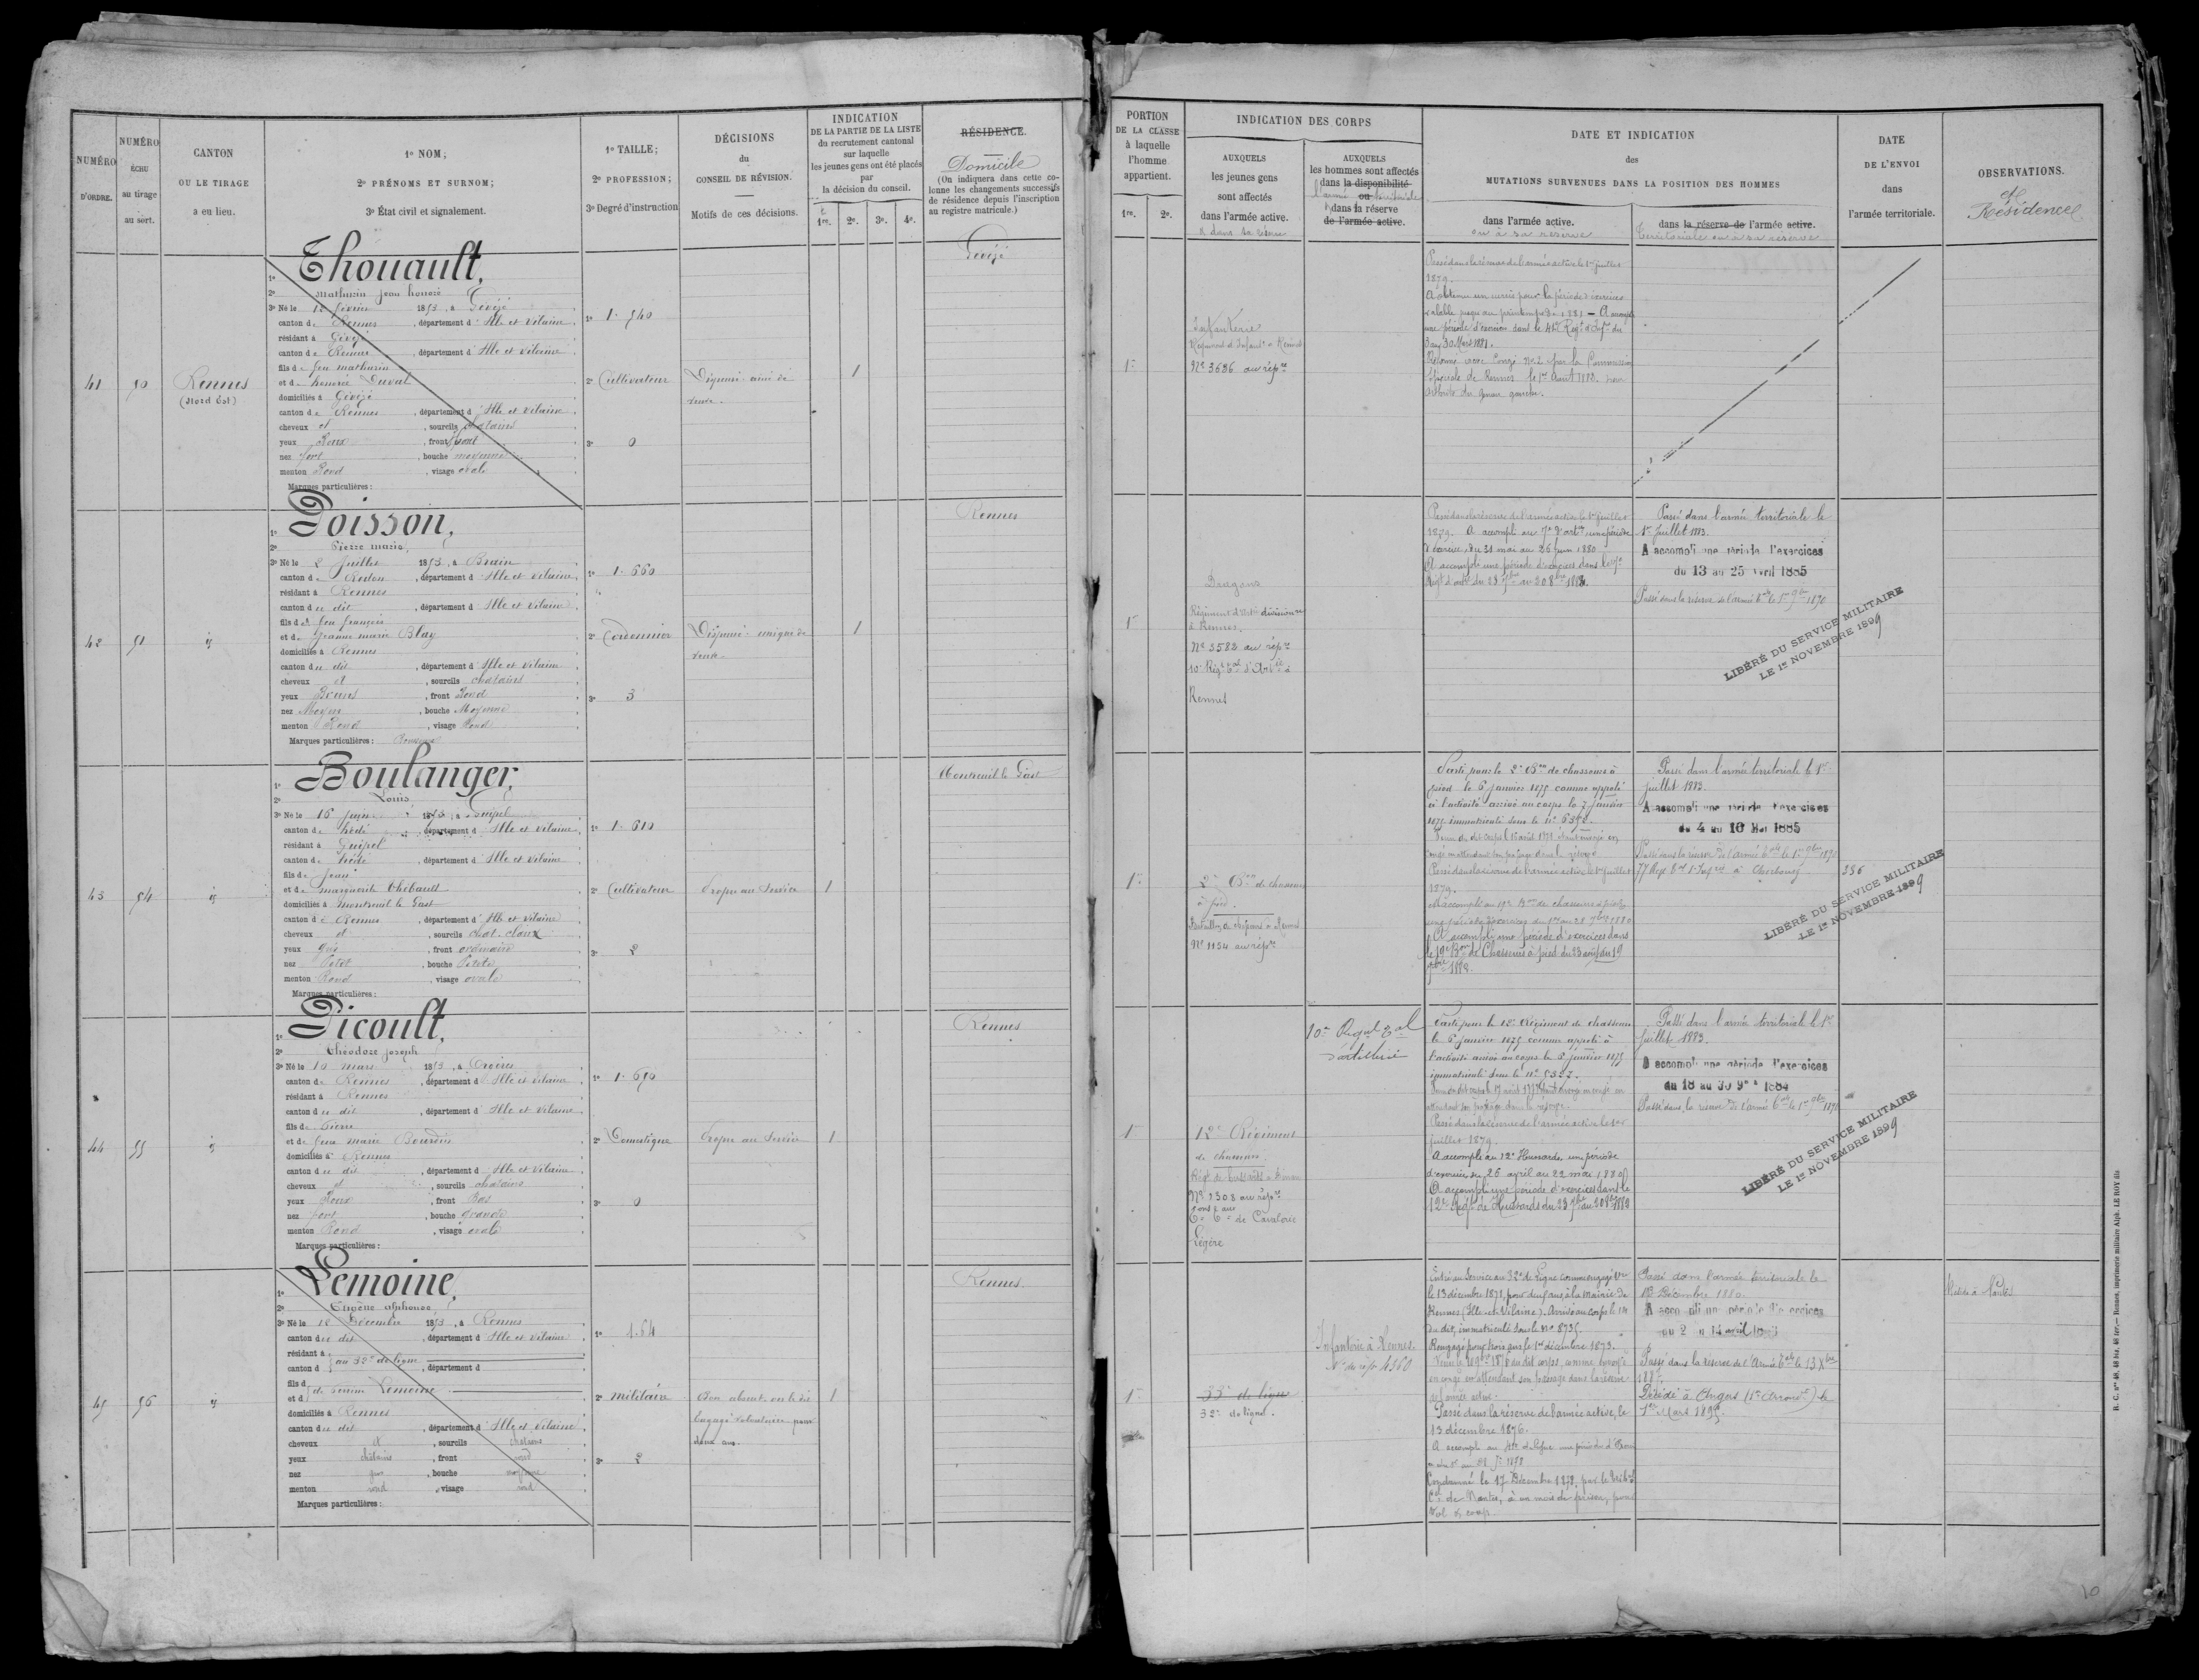 NUMÉRO
D'ORDRE.
NUMÉRO
ÉCHU
au tirage
au sort.
CANTON
OU LE TIRAGE
a eu lieu.
1º NOM;
2º PRÉNOMS ET SURNOM;
3º État civil et signalement.
1º TAILLE;
2º PROFESSION;
3º Degré d'instruction
DÉCISIONS
du
CONSEIL DE RÉVISION.
Motifs de ces décisions.
INDICATION
DE LA PARTIE DE LA LISTE
du recrutement cantonal
sur laquelle
les jeunes gens ont été placés
par
la décision du conseil.
1re. 2e. 3e. 4e.
RÉSIDENCE.
Domicile
(On indiquera dans cette co-
lonne les changements successifs
de résidence depuis l'inscription
au registre matricule.)
41
50
Rennes
(Nord Est)
1º Thouault,
2º Mathurin Jean honoré
3º Né le 12 février 1853, à Gévezé
canton de Rennes, département d'Ille et Vilaine
résidant à Gévezé
canton de Rennes, département d'Ille et Vilaine
fils de feu mathurin
et de honorée Duval
domiciliés à Gévezé
canton de Rennes, département d'Ille et Vilaine
cheveux et, sourcils chatains
yeux Roux, front haut
nez fort, bouche moyenne
menton Rond, visage ovale
Marques particulières:
1º 1.540
2º Cultivateur
3º 0
Dispensé ainé de
veuve.
1
Gévezé
42
51
id
1º Poisson,
2º Pierre marie
3º Né le 2 Juillet 1853, à Brain
canton de Redon, département d'Ille et Vilaine
résidant à Rennes
canton du dit, département d'Ille et Vilaine
fils de feu françois
et de Jeanne marie Blay
domiciliés à Rennes
canton du dit, département d'Ille et Vilaine
cheveux et, sourcils chatains
yeux Bruns, front Rond
nez Moyen, bouche Moyenne
menton Rond, visage Rond
Marques particulières: Rousseurs
1º 1.660
2º Cordonnier
3º 3
Dispensé unique de
veuve.
1
Rennes
43
54
id
1º Boulanger,
2º Louis
3º Né le 16 Juin 1853, à Guipel
canton de hédé, département d'Ille et Vilaine
résidant à Guipel
canton de hédé, département d'Ille et Vilaine
fils de Jean
et de marguerite Thébault
domiciliés à Montreuil le Gast
canton de Rennes, département d'Ille et Vilaine
cheveux et, sourcils chat. clairs
yeux gris, front ordinaire
nez Petit, bouche Petite
menton Rond, visage ovale
Marques particulières:
1º 1.610
2º Cultivateur
3º 2
Propre au Service
1
Montreuil le Gast
44
55
id
1º Picoult,
2º Théodore Joseph
3º Né le 10 mars 1853, à
canton de Rennes, département d'Ille et Vilaine
résidant à Rennes
canton du dit, département d'Ille et Vilaine
fils de Pierre
et de feue marie Bourdin
domiciliés à Rennes
canton du dit, département d'Ille et Vilaine
cheveux et, sourcils chatains
yeux Roux, front Bas
nez fort, bouche grande
menton Rond, visage ovale
Marques particulières:
1º 1.690
2º Domestique
3º 0
Propre au Service
1
Rennes
45
56
id
1º Lemoine,
2º Eugène alphonse
3º Né le 18 Décembre 1853, à Rennes
canton du dit, département d'Ille et Vilaine
résidant à
canton d au 32e de ligne, département d
fils d
et d de femme Lemoine
domiciliés à Rennes
canton du dit, département d'Ille et Vilaine
cheveux et, sourcils chatains
yeux châtains, front rond
nez gros, bouche moyenne
menton rond, visage rond
Marques particulières:
1º 1.64
2º militaire
3º 2
Bon absent on le dit
Engagé volontaire pour
deux ans.
1
Rennes.
PORTION
DE LA CLASSE
à laquelle
l'homme
appartient.
1re. 2e.
INDICATION DES CORPS
AUXQUELS
les jeunes gens
sont affectés
dans l'armée active.
et dans sa réserve
AUXQUELS
les hommes sont affectés
dans la disponibilité
ou
l'armée territoriale
dans la réserve
de l'armée active.
DATE ET INDICATION
des
MUTATIONS SURVENUES DANS LA POSITION DES HOMMES
dans l'armée active.
ou à sa réserve
dans la réserve de l'armée active.
territoriale ou à sa réserve
DATE
DE L'ENVOI
dans
l'armée territoriale.
OBSERVATIONS.
et
Résidence
1re
Infanterie
Régiment d'Infant. à Rennes
Nº 3686 au répre
Passé dans la réserve de l'armée active le 1er juillet
1879.
A obtenu un sursis pour la période d'exercices
valable jusqu'au printemps de 1881 — A accompli
une période d'exercices dans le 41e Régt d'Infie du
3 au 30 Mars 1881.
Réformé avec Congé No 2 par la Commission
Spéciale de Rennes le 1er Août 1882 pour
arthrite du genou gauche.
1re
Dragons
Régiment d'Artie divisionre
à Rennes.
Nº 3582 au répre
10e Régt Tal d'Artie à
Rennes
Passé dans la réserve de l'armée active le 1er juillet
1879. A accompli au 7e d'artie une période
d'exercices, du 31 mai au 26 juin 1880
A accompli une période d'exercices dans le 7e
Régt d'artie du 23 7bre au 20 8bre 1882.
Passé dans l'armée territoriale le
1er Juillet 1883.
A accompli une période d'exercices
du 13 au 25 Avril 1885
Passé dans la réserve de l'armée tale le 1er 9bre 1890
LIBÉRÉ DU SERVICE MILITAIRE
LE 1er NOVEMBRE 1899
1re
2e Bon de chasseurs
à pied.
Bataillon de chasseurs à Rennes
Nº 1154 au répre
Parti pour le 2e Bon de chasseurs à
pied le 6 janvier 1875 comme appelé
à l'activité arrivé au corps le 7 janvier
1875 immatriculé sous le nº 6392.
Passé dans la réserve de l'armée active le 1er juillet
1879.
A accompli au 19e Bon de chasseurs à pied
une période d'exercices du 1er au 28 7bre 1880
A accompli une période d'exercices dans
le 19e Bon de Chasseurs à pied du 23 août au 19
7bre 1882.
Passé dans l'armée territoriale le 1er
juillet 1883.
A accompli une période d'exercices
du 4 au 16 Mai 1885
Passé dans la réserve de l'armée tale le 1er 9bre 1890
77e Régt tal d'Infie à Cherbourg
236
LIBÉRÉ DU SERVICE MILITAIRE
LE 1er NOVEMBRE 1899
1re
12e Régiment
de chasseurs.
Régt de hussards à Dinan
Nº 1308 au répre
Ee Te de Cavalerie
Légère
10e Régt Tal
d'artillerie
Parti pour le 12e Régiment de chasseurs
le 6 janvier 1875 comme appelé à
l'activité arrivé au corps le 6 janvier 1875
immatriculé sous le nº 5337.
Passé dans la réserve de l'armée active le 1er
juillet 1879.
A accompli au 12e Hussards, une période
d'exercices du 26 avril au 22 mai 1880
A accompli une période d'exercices dans le
12e Régt de Hussards du 23 7bre au 20 8bre 1882
Passé dans l'armée territoriale le 1er
Juillet 1883.
A accompli une période d'exercices
du 18 au 30 9bre 1884
Passé dans la réserve de l'armée tale le 1er 9bre 1890
LIBÉRÉ DU SERVICE MILITAIRE
LE 1er NOVEMBRE 1899
1re
33e de ligne
32e de ligne.
Infanterie à Rennes.
Nº du répre 4360
Entré au Service au 32e de Ligne comme engagé vre
le 13 décembre 1871, pour deux ans, à la mairie de
Rennes (Ille-et-Vilaine). Arrivé au corps le 14
du dit, immatriculé sous le no 8735.
Rengagé pour trois ans le 1er décembre 1873.
en congé en attendant son passage dans la réserve
de l'armée active.
Passé dans la réserve de l'armée active, le
13 décembre 1876.
Condamné le 17 Décembre 1878, par le tribal
Cel de Nantes, à un mois de prison, pour
Vol et coups
Passé dans l'armée territoriale le
13 Décembre 1880.
A accompli une période d'exercices
du 2 au 14 avril
Passé dans la réserve de l'Armée Tale le 13 Xbre
188
Décédé à Angers (1er Arrondt) le
1er Mars 1895.
Réside à Nantes
R. C. nos 46, 48 bis, 48 ter. — Rennes, imprimerie militaire Alph. LE ROY fils
10